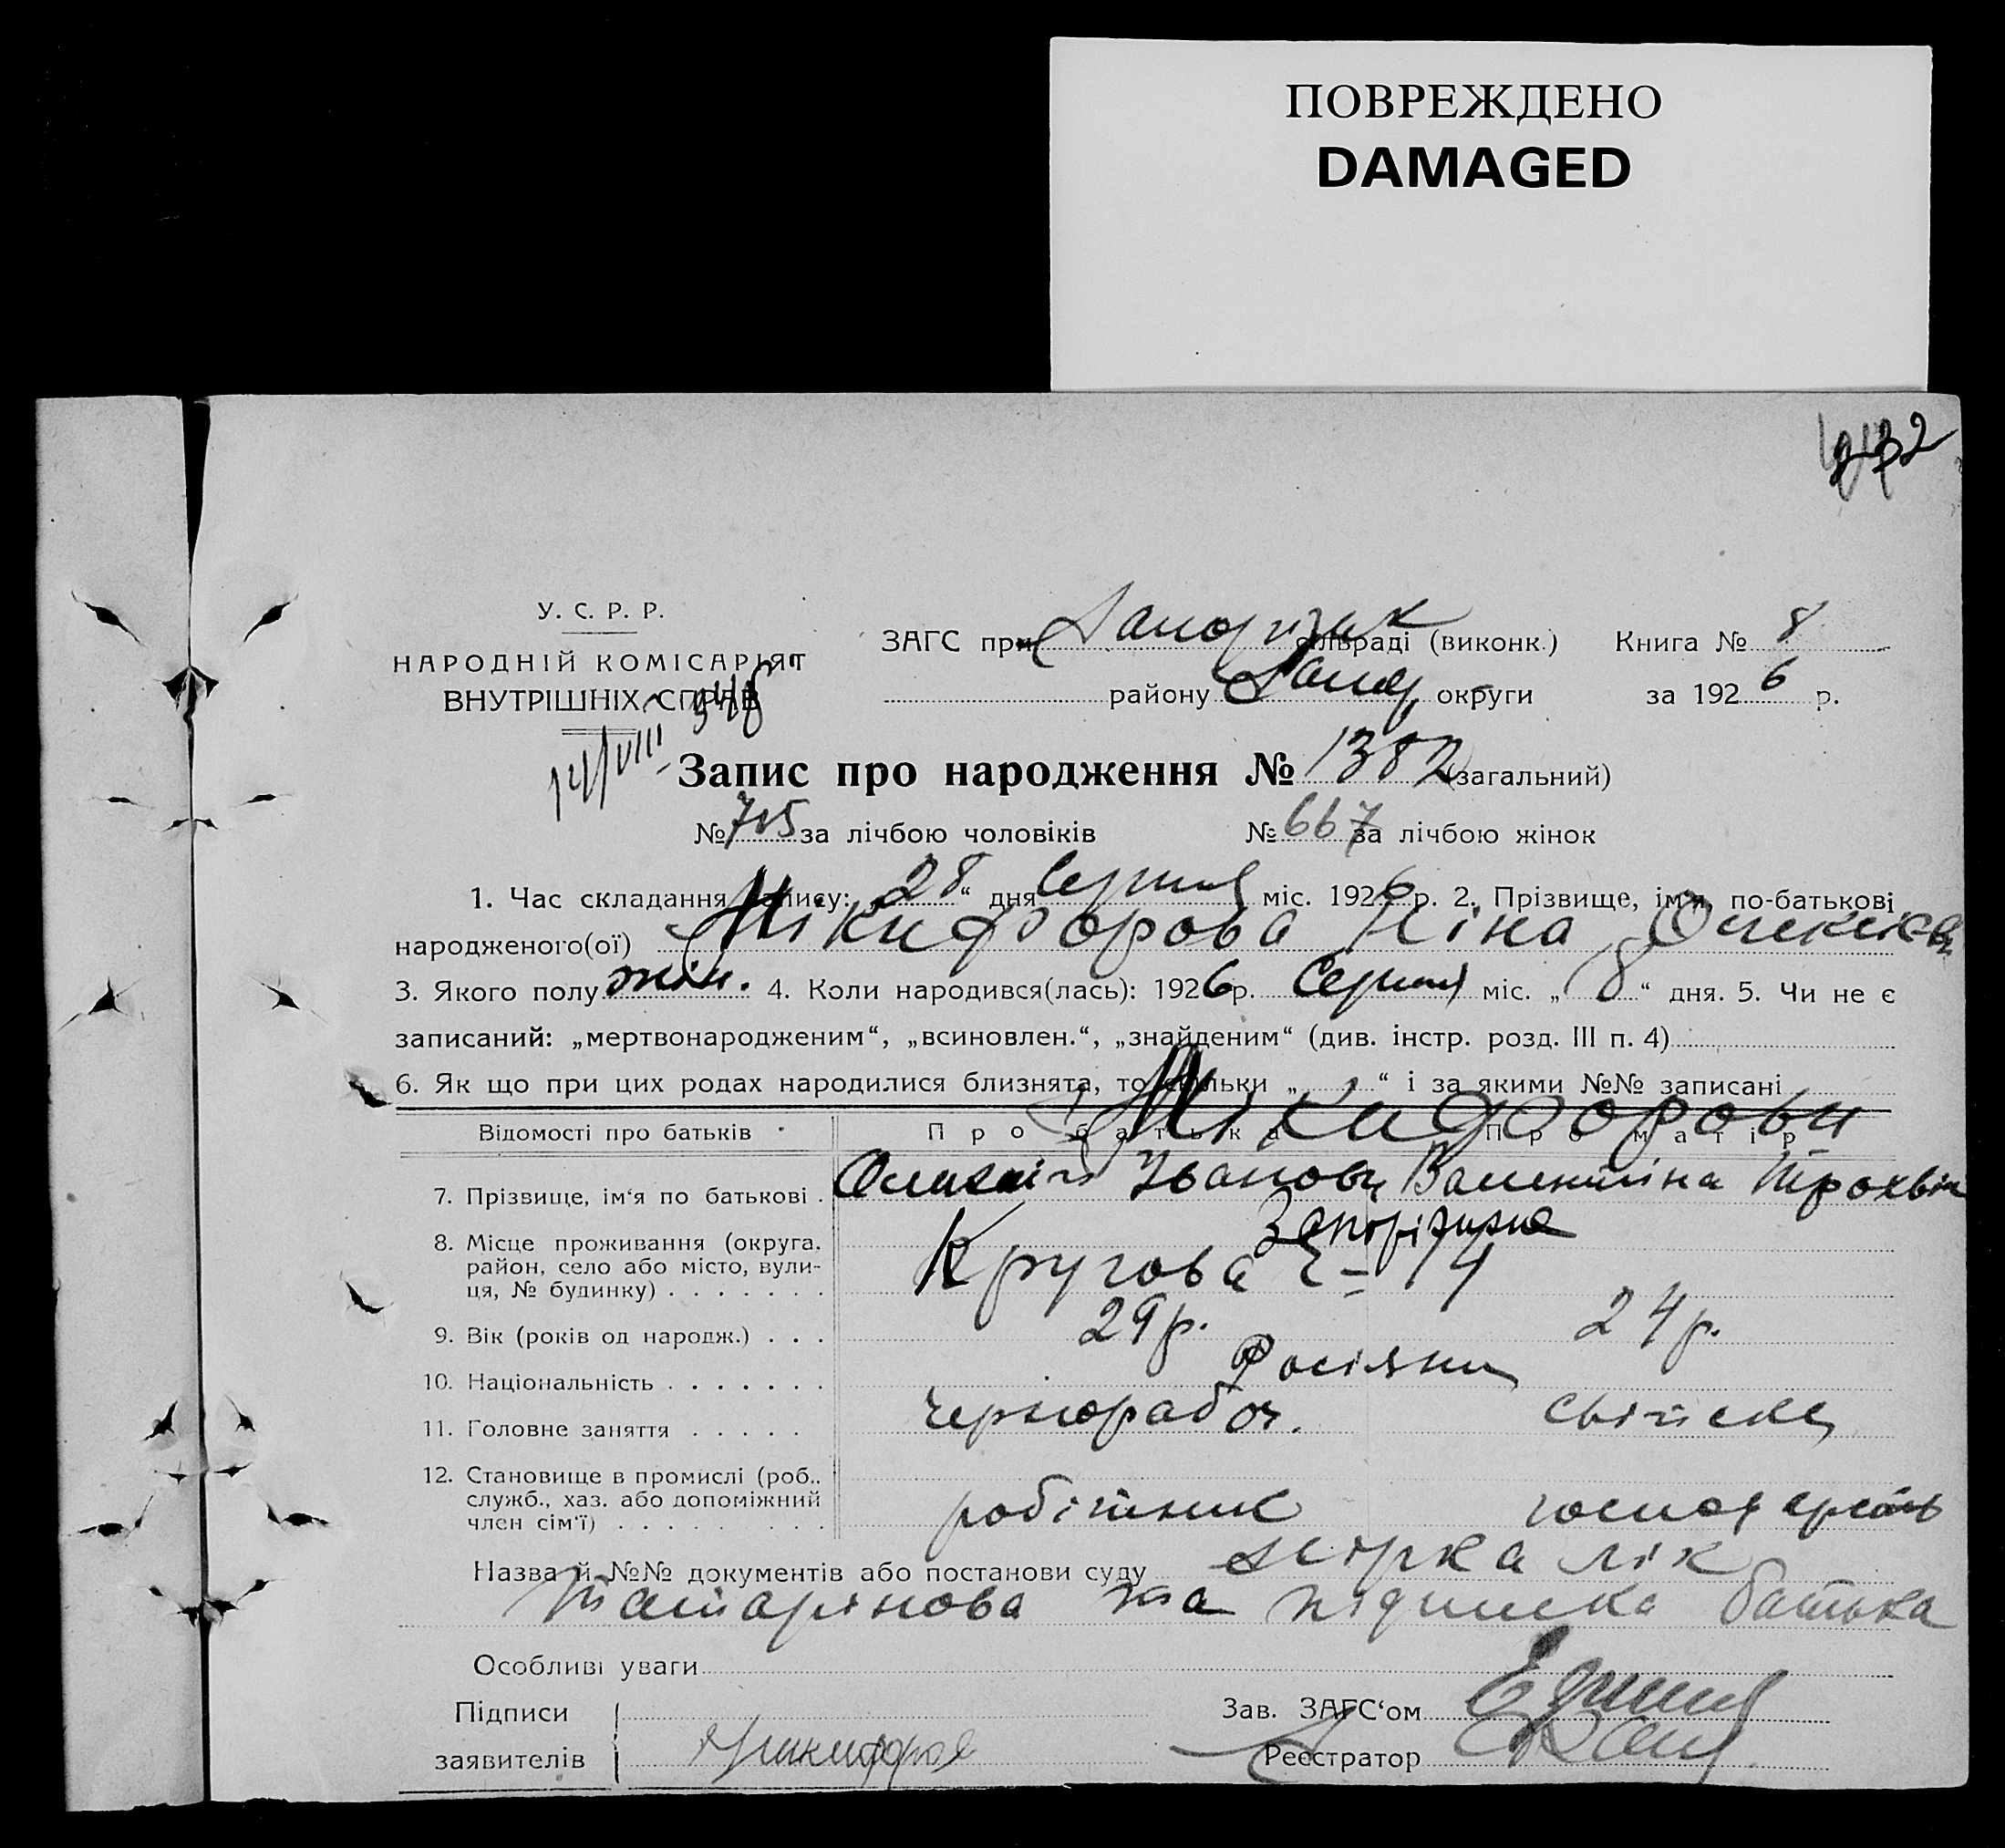 ПОВРЕЖДЕНО
DAMAGED
У. С. Р. Р.
НАРОДНІЙ КОМІСАРІЯТ
ВНУТРІШНІХ СПРАВ
ЗАГС при Запоріжж сільраді (виконк.) Книга № 8
району Запор округи за 1926 р.
14/VIII
Запис про народження № 1382 (загальний)
№ 715 за лічбою чоловіків № 667 за лічбою жінок
1. Час складання запису: „28“ дня Серпня міс. 1926 р. 2. Прізвище, ім'я, по-батькові
народженого(ої) Нікифорова Ніна Олексієв
3. Якого полу жін. 4. Коли народився(лась): 1926 р. Серпня міс. „8“ дня. 5. Чи не є
записаний: „мертвонародженим“, „всиновлен.“, „знайденим“ (див. інстр. розд. III п. 4)
6. Як що при цих родах народилися близнята, то скільки „ “ і за якими №№ записані
Нікифорови
Відомості про батьків Про батька Про матір
7. Прізвище, ім'я по батькові Олексій Іванов Валентіна Трохвім
8. Місце проживання (округа, район, село або місто, вулиця, № будинку) Запоріжжя
Кругова 14
9. Вік (років од народж.) 29 р. 24 р.
10. Національність Росіяни
11. Головне заняття чернорабоч. свійска
12. Становище в промислі (роб., служб., хаз. або допоміжний член сім'ї) робітник господарств
Назва й №№ документів або постанови суду лік
Татарінова та підписка батька
Особливі уваги
Підписи заявителів Никифоров
Зав. ЗАГС'ом
Реєстратор